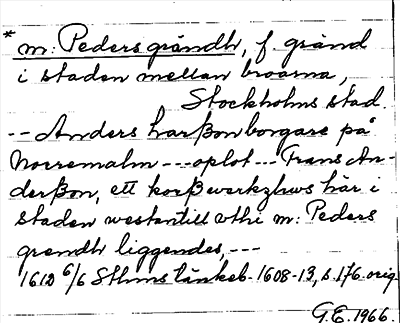 * m: Peders grändh, f. gränd
i staden mellan broarna,
Stockholms stad.
-- Anders harßon borgare på
Norremalm --- oplot --- Frans An-
derßon, ett korßwerkzhws här i
staden westantill vthi m: Peders
grendh liggendes, ---
1612 6/6 Sthms tänkeb. 1608-13, s. 176 orig.
G.E. 1966.